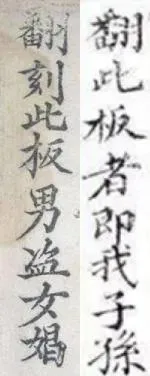 翻刻此板男盗女娼
翻此板者即我子孫